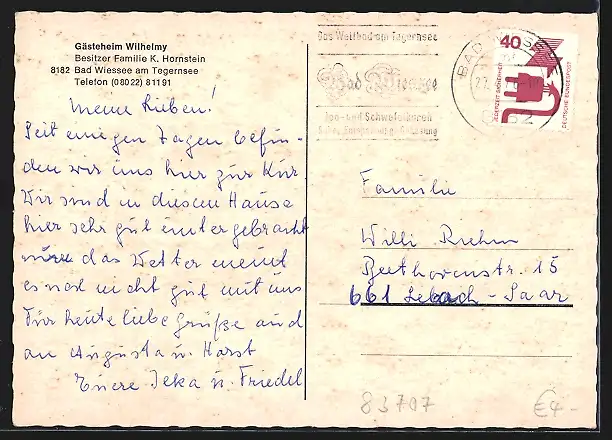 Gästeheim Wilhelmy
Besitzer Familie K. Hornstein
8182 Bad Wiessee am Tegernsee
Telefon (08022) 81191
Meine Lieben!
Seit einigen Tagen befin-
den wir uns hier zur Kur
Wir sind in diesem Hause
hier sehr gut untergebracht
nur das Wetter meint
es noch nicht gut mit uns
Für heute liebe Grüße auch
an Augusta u. Horst
Eure Ilka u. Friedel
Das Weltbad am Tegernsee
Bad Wiessee
Jod- und Schwefelkuren
BAD WIESSEE
8182
40
JEDERZEIT SICHERHEIT
DEUTSCHE BUNDESPOST
Familie
Willi Riehm
Beethovenstr. 15
661 Lebach-Saar
83707
€4-